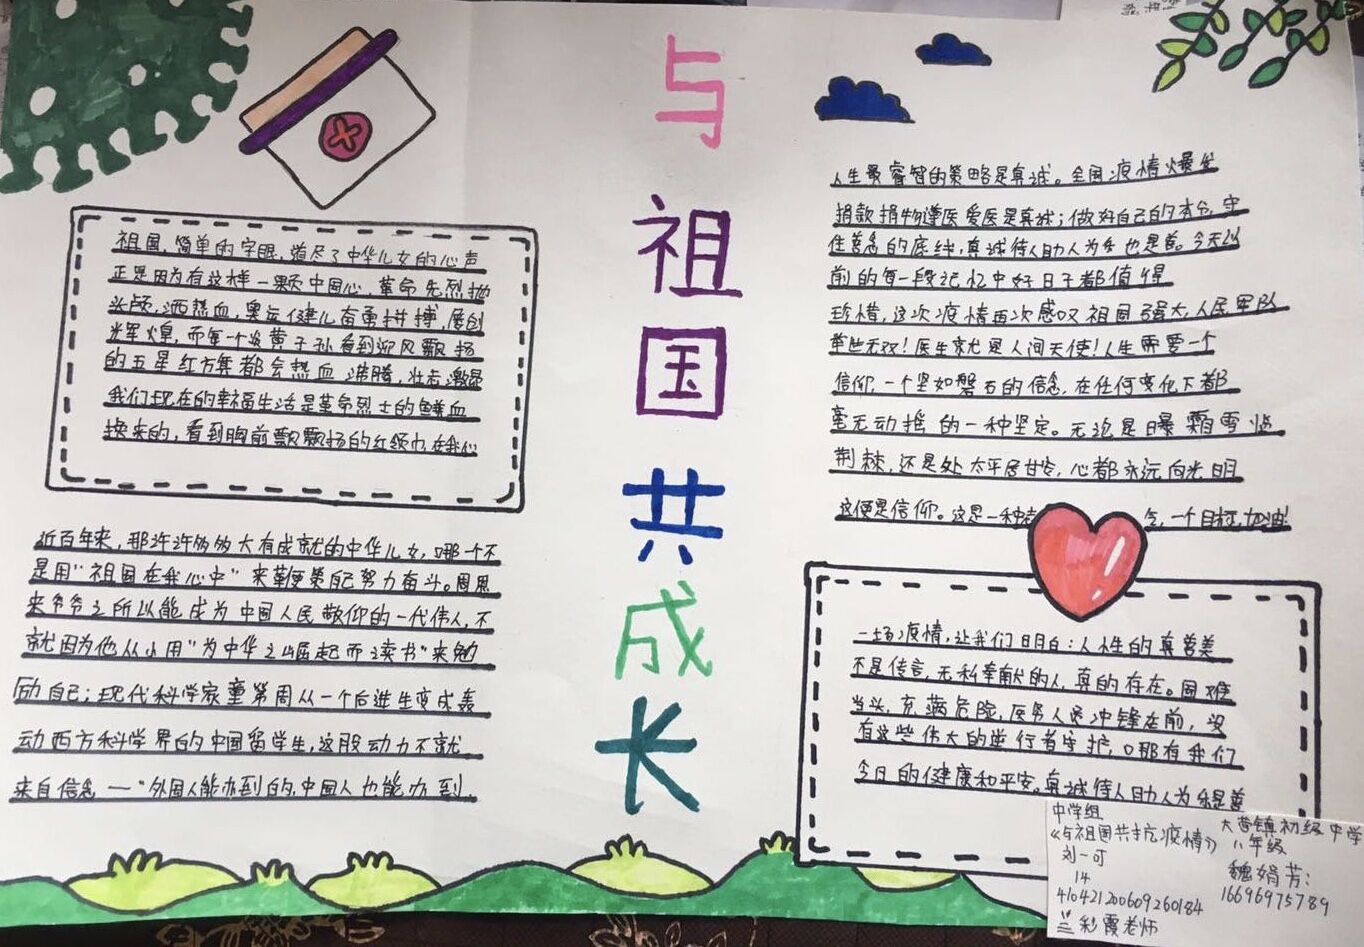 与祖国共成长
祖国，简单的字眼，道尽了中华儿女的心声
正是因为有这样一颗中国心，革命先烈抛
头颅，洒热血，奥运健儿奋勇拼搏，屡创
辉煌，而每一个炎黄子孙看到迎风飘扬
的五星红旗都会热血沸腾，壮志激昂
我们现在的幸福生活是革命烈士的鲜血
换来的，看到胸前飘飘扬的红领巾，在我心
近百年来，那许许多多大有成就的中华儿女，哪一个不
是用“祖国在我心中”来鞭策自己努力奋斗。周恩
来爷爷之所以能成为中国人民敬仰的一代伟人，不
就因为他从小用“为中华之崛起而读书”来勉
励自己；现代科学家童第周从一个后进生变成轰
动西方科学界的中国留学生，这股动力不就
来自信念一“外国人能办到的，中国人也能办到，
人生最睿智的策略是真诚。全国疫情爆发
捐款捐物谨医爱医是真诚；做好自己的本分，守
住善念的底线，真诚待人助人为乐也是善。今天以
前的每一段记忆中好日子都值得
珍惜，这次疫情再次感叹祖国强大，人民军队
举世无双！医生就是人间天使！人生需要一个
信仰，一个坚如磐石的信念，在任何变化下都
毫无动摇的一种坚定。无论是曝霜雪临
荆棘，还是处太平居甘吉，心都永远向光明
这便是信仰。这是一种 气，一个目标，加油！
一场疫情，让我们明白：人性的真善美
不是传言，无私奉献的人，真的存在。国难
当头，充满危险，医务人员冲锋在前，没
有这些伟大的逆行者守护，哪有我们
今日的健康和平安。真诚待人助人为乐是善
中学组
《与祖国共抗疫情》
刘一可
14
410421200609260184
彩霞老师
大营镇初级中学
八年级
魏娟芳：
16696975789